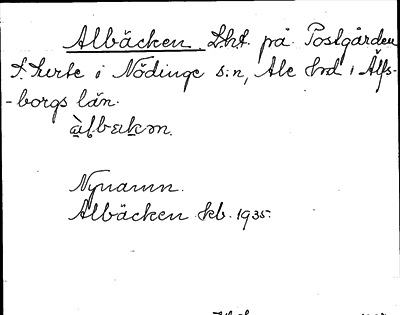 Albäcken Lht. på Postgården
i Nödinge s:n, Ale hrd i Älfs-
-borgs län.
Nynamn.
Albäcken kb. 1935.